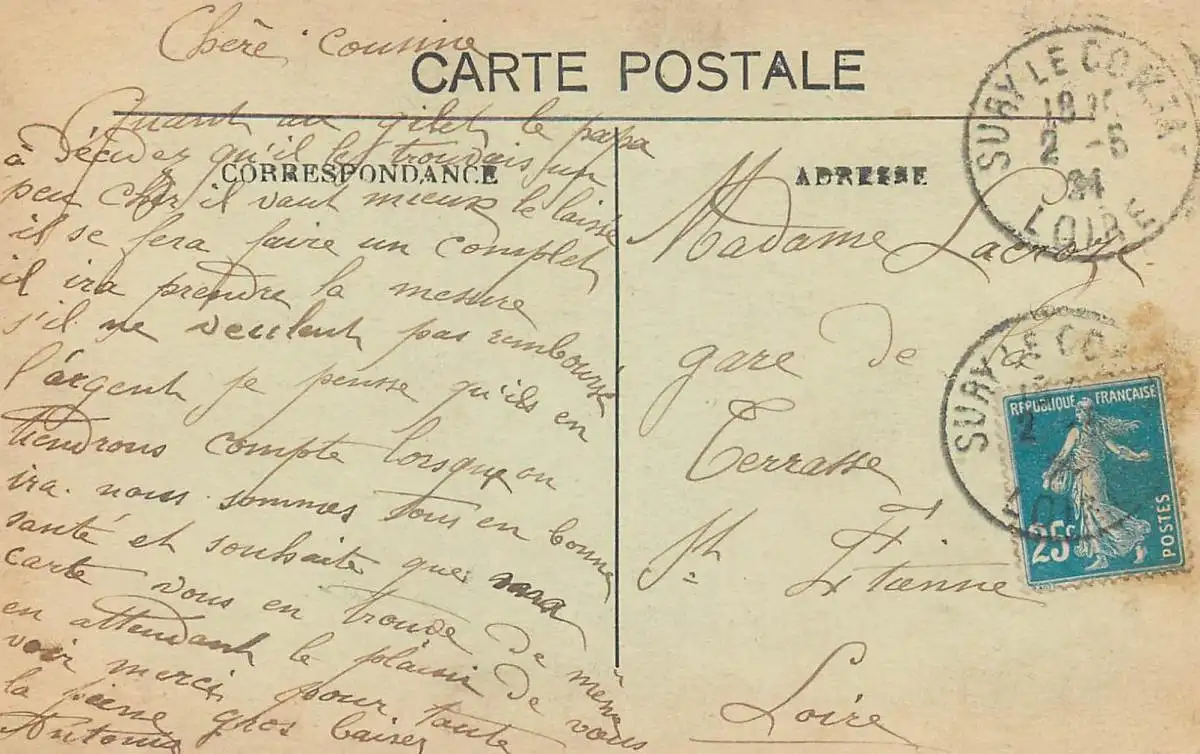 Chère cousine
CARTE POSTALE
Quant au gilet le papa
à décidez qu'il le trouvais un
CORRESPONDANCE
peu cher il vaut mieux le laisse
il se fera faire un complet
il ira prendre la mesure
s'il ne veulent pas rembourse
l'argent je pensse qu'ils en
tiendrons compte lorsqu'on
ira. nous sommes tous en bonne
santé et souhaite que ma
carte vous en trouve de même
en attendant le plaisir de vous
voir merci pour toute
la peine gros baiser
Antonia
ADRESSE
Madame Lacroze
gare de la
Terrasse
St Étienne
Loire
SURY LE COMTAL
2 -5
24
LOIRE
SURY LE CO
2
REPUBLIQUE FRANÇAISE
25c
POSTES